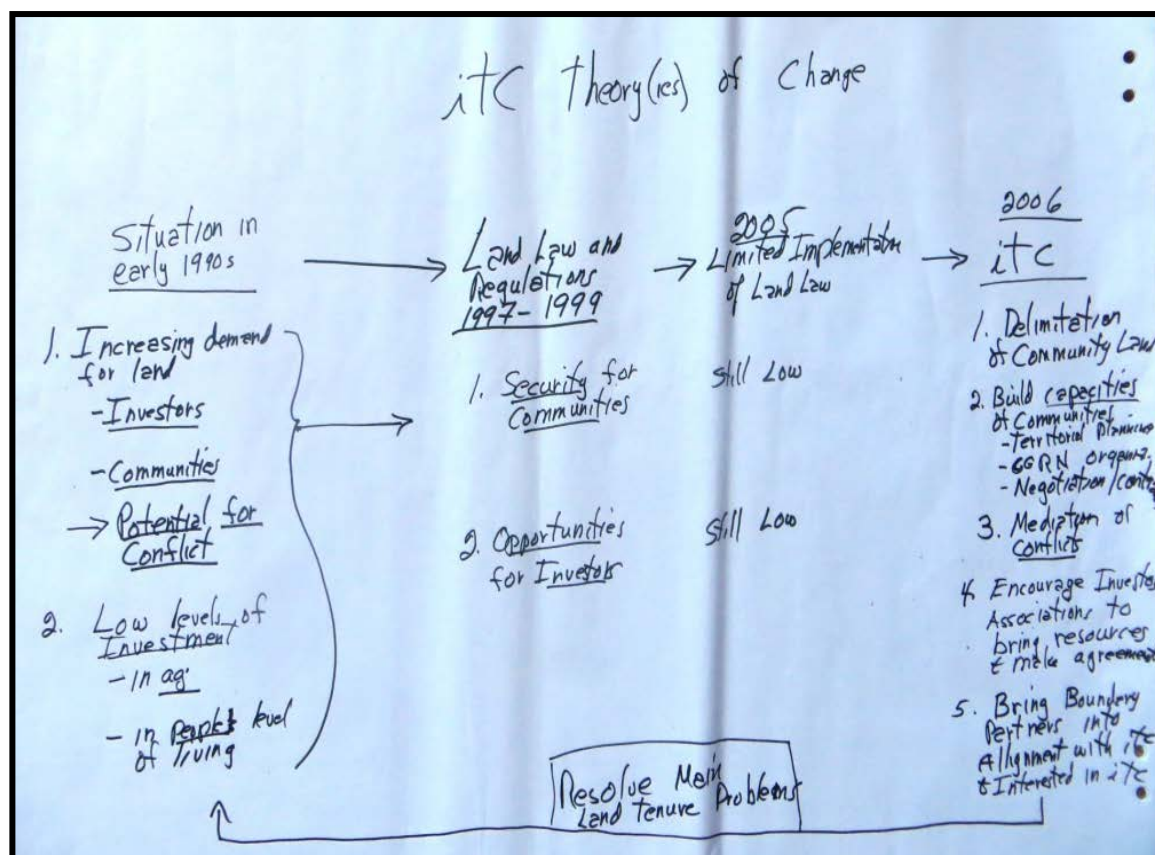 itC Theory(ies) of Change
Situation in
early 1990s
1. Increasing demand
for land
- Investors
- Communities
→ Potential for
Conflict
2. Low levels of
Investment
- in ag
- in People's level
of living
Land Law and
Regulations
1997-1999
1. Security for
Communities
2. Opportunities
for Investors
2005
Limited Implementation
of Land Law
Still Low
Still Low
2006
itC
1. Delimitation
of Community
2. Build capacities
of Communities
- Territorial Planning
- organiz.
- Negotiation/
3. Mediation of
Conflicts
4. Encourage
Associations to
bring resources
& make
5. Bring Boundery
Partners into
Allignment with itc
& Interested in itc
Resolve Main
Land Tenure Problems